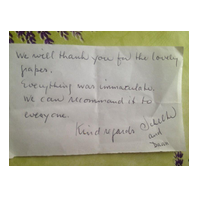 We will thank you for the lovely
paper.
Everything was immaculate.
We can recommend it to
everyone
Kind regards
and